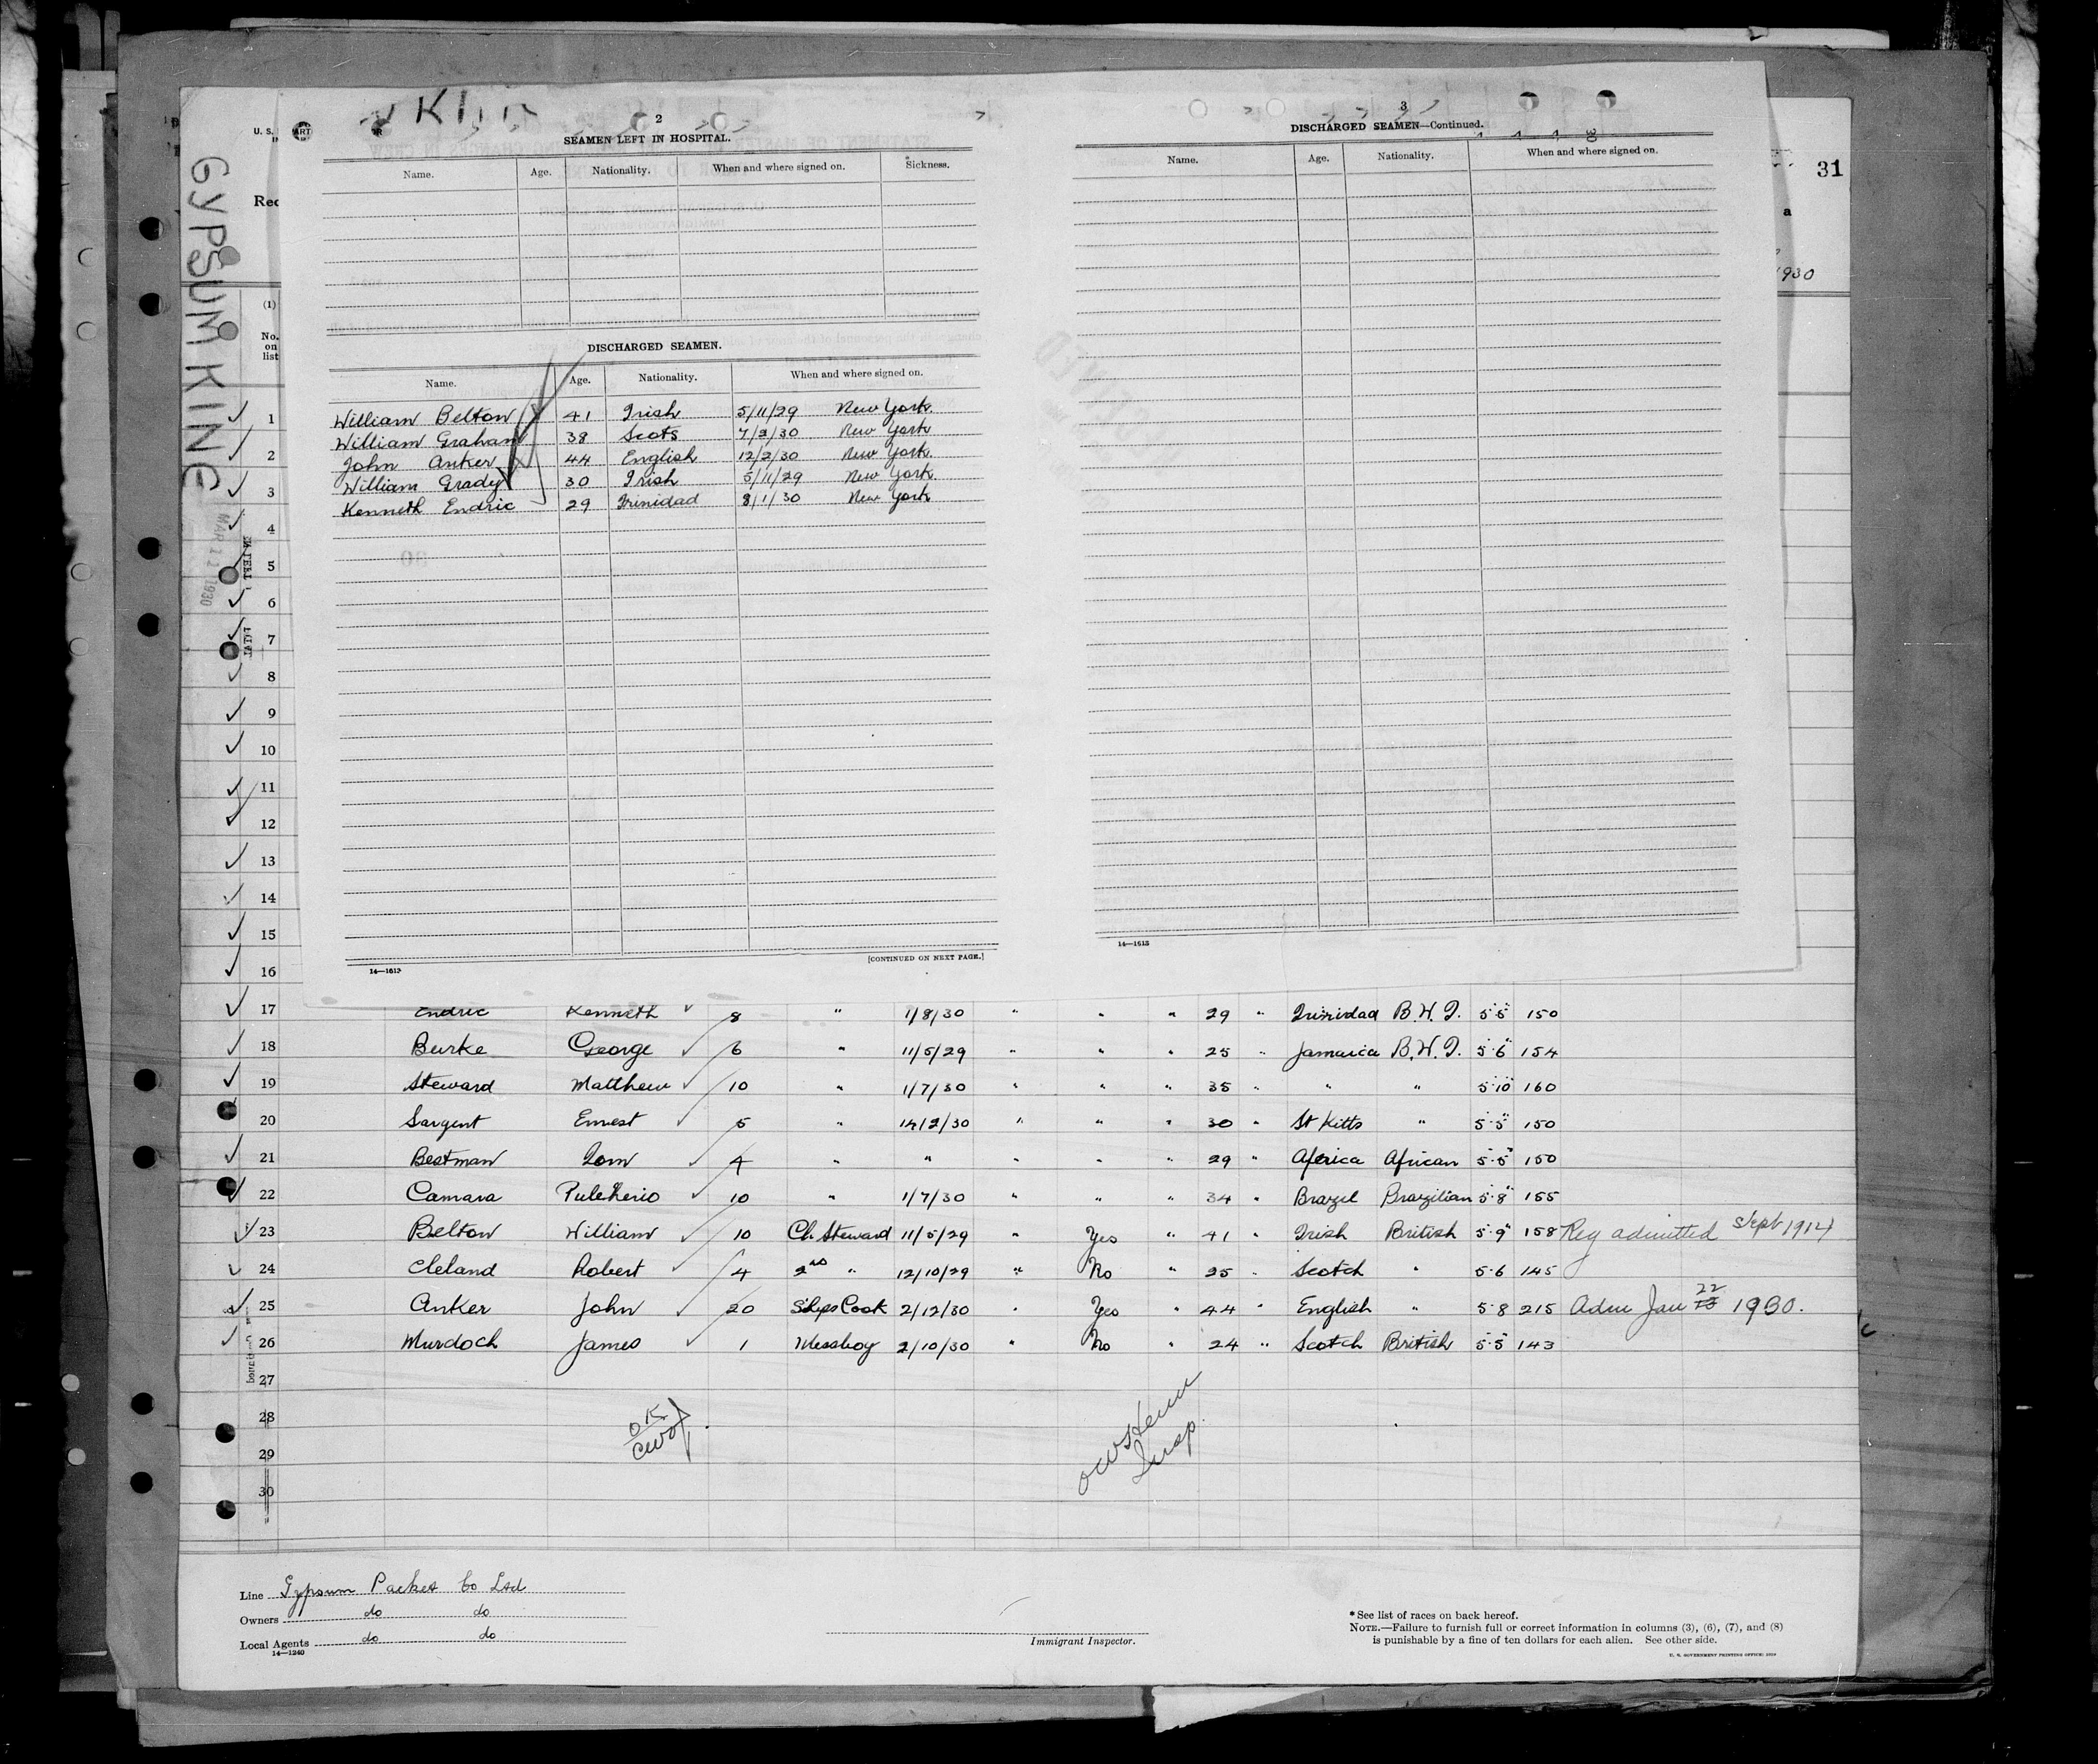 GYPSUM KING
MAR 12 1930
U. S.
Rec
31
1930
2
SEAMEN LEFT IN HOSPITAL.
Name. Age. Nationality. When and where signed on. Sickness.
DISCHARGED SEAMEN.
Name. Age. Nationality. When and where signed on.
William Belton 41 Irish 5/11/29 New York.
William Graham 38 Scots 7/2/30 New York
John Anker 44 English 12/2/30 New York.
William Grady 30 Irish 5/11/29 New York.
Kenneth Endric 29 Trinidad 8/1/30 New York
14—1613
[CONTINUED ON NEXT PAGE.]
3
DISCHARGED SEAMEN—Continued.
Name. Age. Nationality. When and where signed on.
14—1613
(1)
No. on list
1
2
3
4
5
6
7
8
9
10
11
12
13
14
15
16
17 Endric Kenneth 8 " 1/8/30 " " " 29 " Trinidad B.W.I. 5'5" 150
18 Burke George 6 " 11/5/29 " " " 25 " Jamaica B.W.I. 5'6" 154
19 Steward Matthew 10 " 1/7/30 " " " 35 " " " 5'10" 160
20 Sargent Ernest 5 " 14/2/30 " " " 30 " St Kitts " 5'5" 150
21 Bestman Tom 4 " " " " " 29 " Africa African 5'5" 150
22 Camara Pulcherio 10 " 1/7/30 " " " 34 " Brazil Brazilian 5'8" 155
23 Belton William 10 Ch. Steward 11/5/29 " Yes " 41 " Irish British 5'9" 158 Reg admitted Sept 1912
24 Cleland Robert 4 2nd " 12/10/29 " No " 25 " Scotch " 5'6 145
25 Anker John 20 Ships Cook 2/12/30 " Yes " 44 " English " 5'8 215 Adm Jan 22 1930.
26 Murdoch James 1 Messboy 2/10/30 " No " 24 " Scotch British 5'5" 143
27
28
29
30
OK
Insp.
Line Gypsum Packet Co Ltd
Owners do do
Local Agents do do
14—1240
Immigrant Inspector.
* See list of races on back hereof.
NOTE.—Failure to furnish full or correct information in columns (3), (6), (7), and (8)
is punishable by a fine of ten dollars for each alien. See other side.
U. S. GOVERNMENT PRINTING OFFICE: 1929